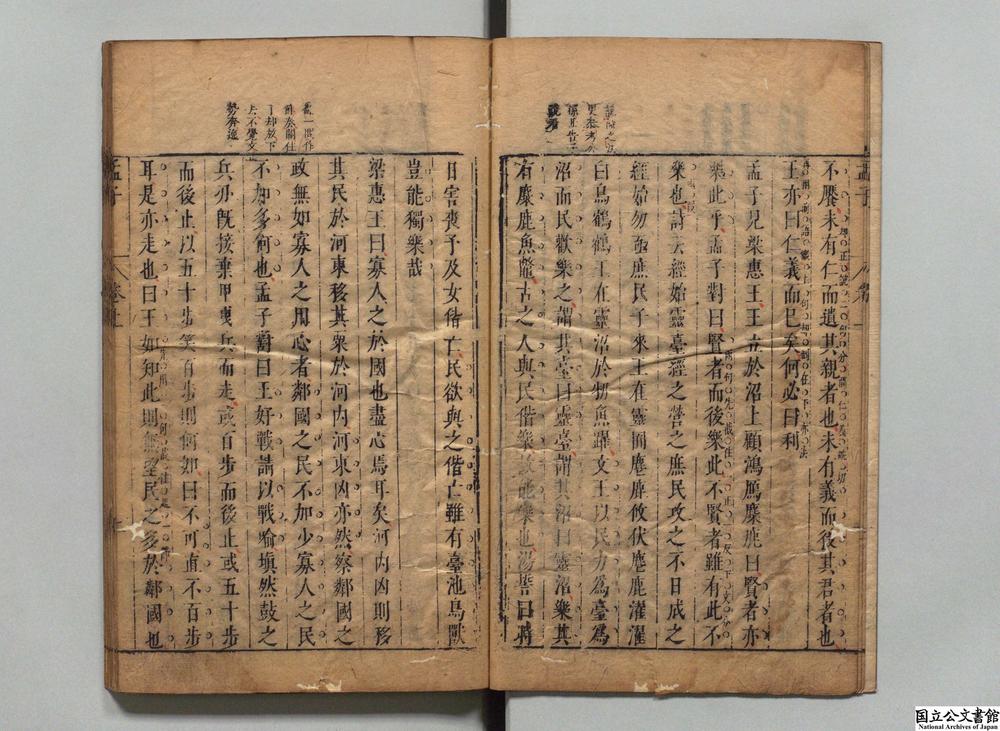 不饜未有仁而遺其親者也未有義而後其君者也
王亦曰仁義而已矣何必曰利
孟子見梁惠王王立於沼上顧鴻鴈麋鹿曰賢者亦
樂此乎孟子對曰賢者而後樂此不賢者雖有此不
樂也詩云經始靈臺經之營之庶民攻之不日成之
經始勿亟庶民子來王在靈囿麀鹿攸伏麀鹿濯濯
白鳥鶴鶴王在靈沼於牣魚躍文王以民力為臺為
沼而民歡樂之謂其臺曰靈臺謂其沼曰靈沼樂其
有麋鹿魚鼈古之人與民偕樂故能樂也湯誓曰時
日害喪予及女偕亡民欲與之偕亡雖有臺池鳥獸
豈能獨樂哉
梁惠王曰寡人之於國也盡心焉耳矣河內凶則移
其民於河東移其粟於河內河東凶亦然察鄰國之
政無如寡人之用心者鄰國之民不加少寡人之民
不加多何也孟子對曰王好戰請以戰喻填然鼓之
兵刃既接棄甲曳兵而走或百步而後止或五十步
而後止以五十步笑百步則何如曰不可直不百步
耳是亦走也曰王如知此則無望民之多於鄰國也
孟子
卷上
国立公文書館
National Archives of Japan